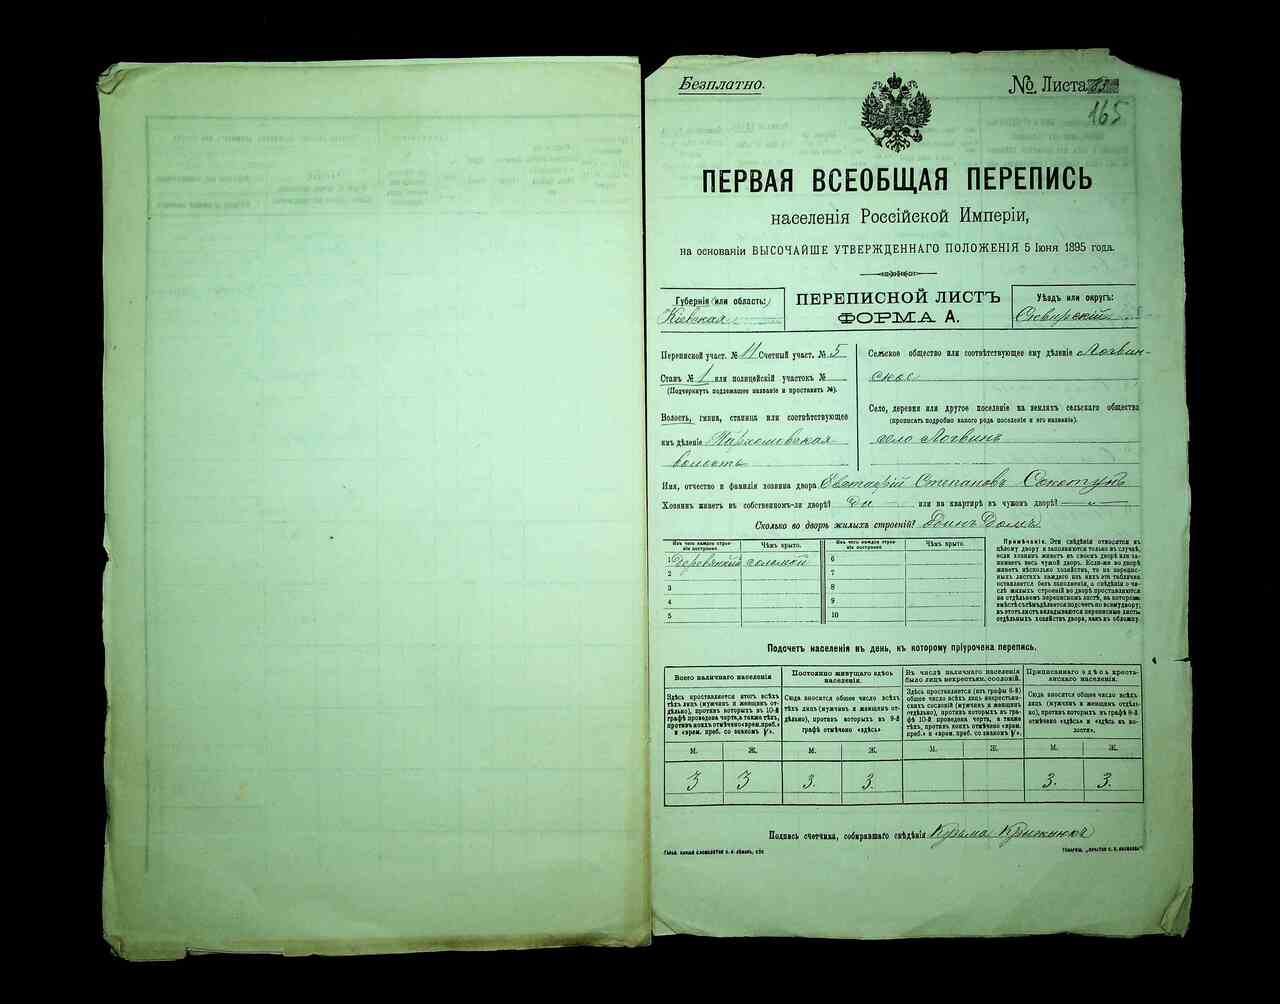 Безплатно.
№ Листа
165
ПЕРВАЯ ВСЕОБЩАЯ ПЕРЕПИСЬ
населенія Россійской Имперіи,
на основаніи ВЫСОЧАЙШЕ УТВЕРЖДЕННАГО ПОЛОЖЕНІЯ 5 Іюня 1895 года.
Губернія (или область:)
Кіевская
ПЕРЕПИСНОЙ ЛИСТЪ
ФОРМА А.
Уѣздъ или округъ:
Сквирскій
Переписной участ. № 11 Счетный участ. № 5
Станъ № 1 или полицейскій участокъ №
(Подчеркнуть подлежащее названіе и проставить №).
Волость, гмина, станица или соотвѣтствующее
имъ дѣленіе Пархомовская
волость
Сельское общество или соотвѣтствующее ему дѣленіе Логвин-
ское
Село, деревня или другое поселеніе на земляхъ сельскаго общества
(прописать подробно какого рода поселеніе и его названіе).
село Логвинъ
Имя, отчество и фамилія хозяина двора Евстафій Степановъ
Хозяинъ живетъ въ собственномъ-ли дворѣ? Да или на квартирѣ въ чужомъ дворѣ? —
Сколько во дворѣ жилыхъ строеній? Одинъ Домъ
Изъ чего каждое строеніе построено. Чѣмъ крыто. Изъ чего каждое строеніе построено. Чѣмъ крыто.
1 Деревянный соломой 6
2 7
3 8
4 9
5 10
Примѣчаніе. Эти свѣдѣнія относятся къ
цѣлому двору и заполняются только въ случаѣ,
если хозяинъ живетъ въ своемъ дворѣ или за-
нимаетъ весь чужой дворъ. Если-же во дворѣ
живетъ нѣсколько хозяйствъ, то на перепис-
ныхъ листахъ каждаго изъ нихъ эта табличка
оставляется безъ заполненія, а свѣдѣнія о чи-
слѣ жилыхъ строеній во дворѣ проставляются
на отдѣльномъ переписномъ листѣ, на которомъ
вмѣстѣ съ тѣмъ дѣлается подсчетъ по всему двору;
въ этотъ листъ вкладываются переписные листы
отдѣльныхъ хозяйствъ двора, какъ въ обложку.
Подсчетъ населенія въ день, къ которому пріурочена перепись.
Всего наличнаго населенія
Здѣсь проставляется итогъ всѣхъ
тѣхъ лицъ (мужчинъ и женщинъ от-
дѣльно), противъ которыхъ въ 10-й
графѣ проведена черта, а также тѣхъ,
противъ коихъ отмѣчено «врем. преб.»
и «врем. преб. со знакомъ V».
Постоянно живущаго здѣсь
населенія.
Сюда вносится общее число всѣхъ
тѣхъ лицъ (мужчинъ и женщинъ от-
дѣльно), противъ которыхъ въ 9-й
графѣ отмѣчено «здѣсь»
Въ числѣ наличнаго населенія
было лицъ некрестьян. сословій.
Здѣсь проставляется (изъ графы 6-й)
общее число всѣхъ лицъ некрестьян-
скихъ сословій (мужчинъ и женщинъ
отдѣльно), противъ которыхъ въ гра-
фѣ 10-й проведена черта, а также
тѣхъ, противъ коихъ отмѣчено «врем.
преб.» и «врем. преб. со знакомъ V».
Приписаннаго здѣсь кресть-
янскаго населенія.
Сюда вносится общее число всѣхъ
лицъ (мужчинъ и женщинъ отдѣль-
но), противъ которыхъ въ графѣ 8-й
отмѣчено «здѣсь» и «здѣсь въ во-
лости».
М. Ж. М. Ж. М. Ж. М. Ж.
3 3 3. 3. 3. 3.
Подпись счетчика, собиравшаго свѣдѣнія